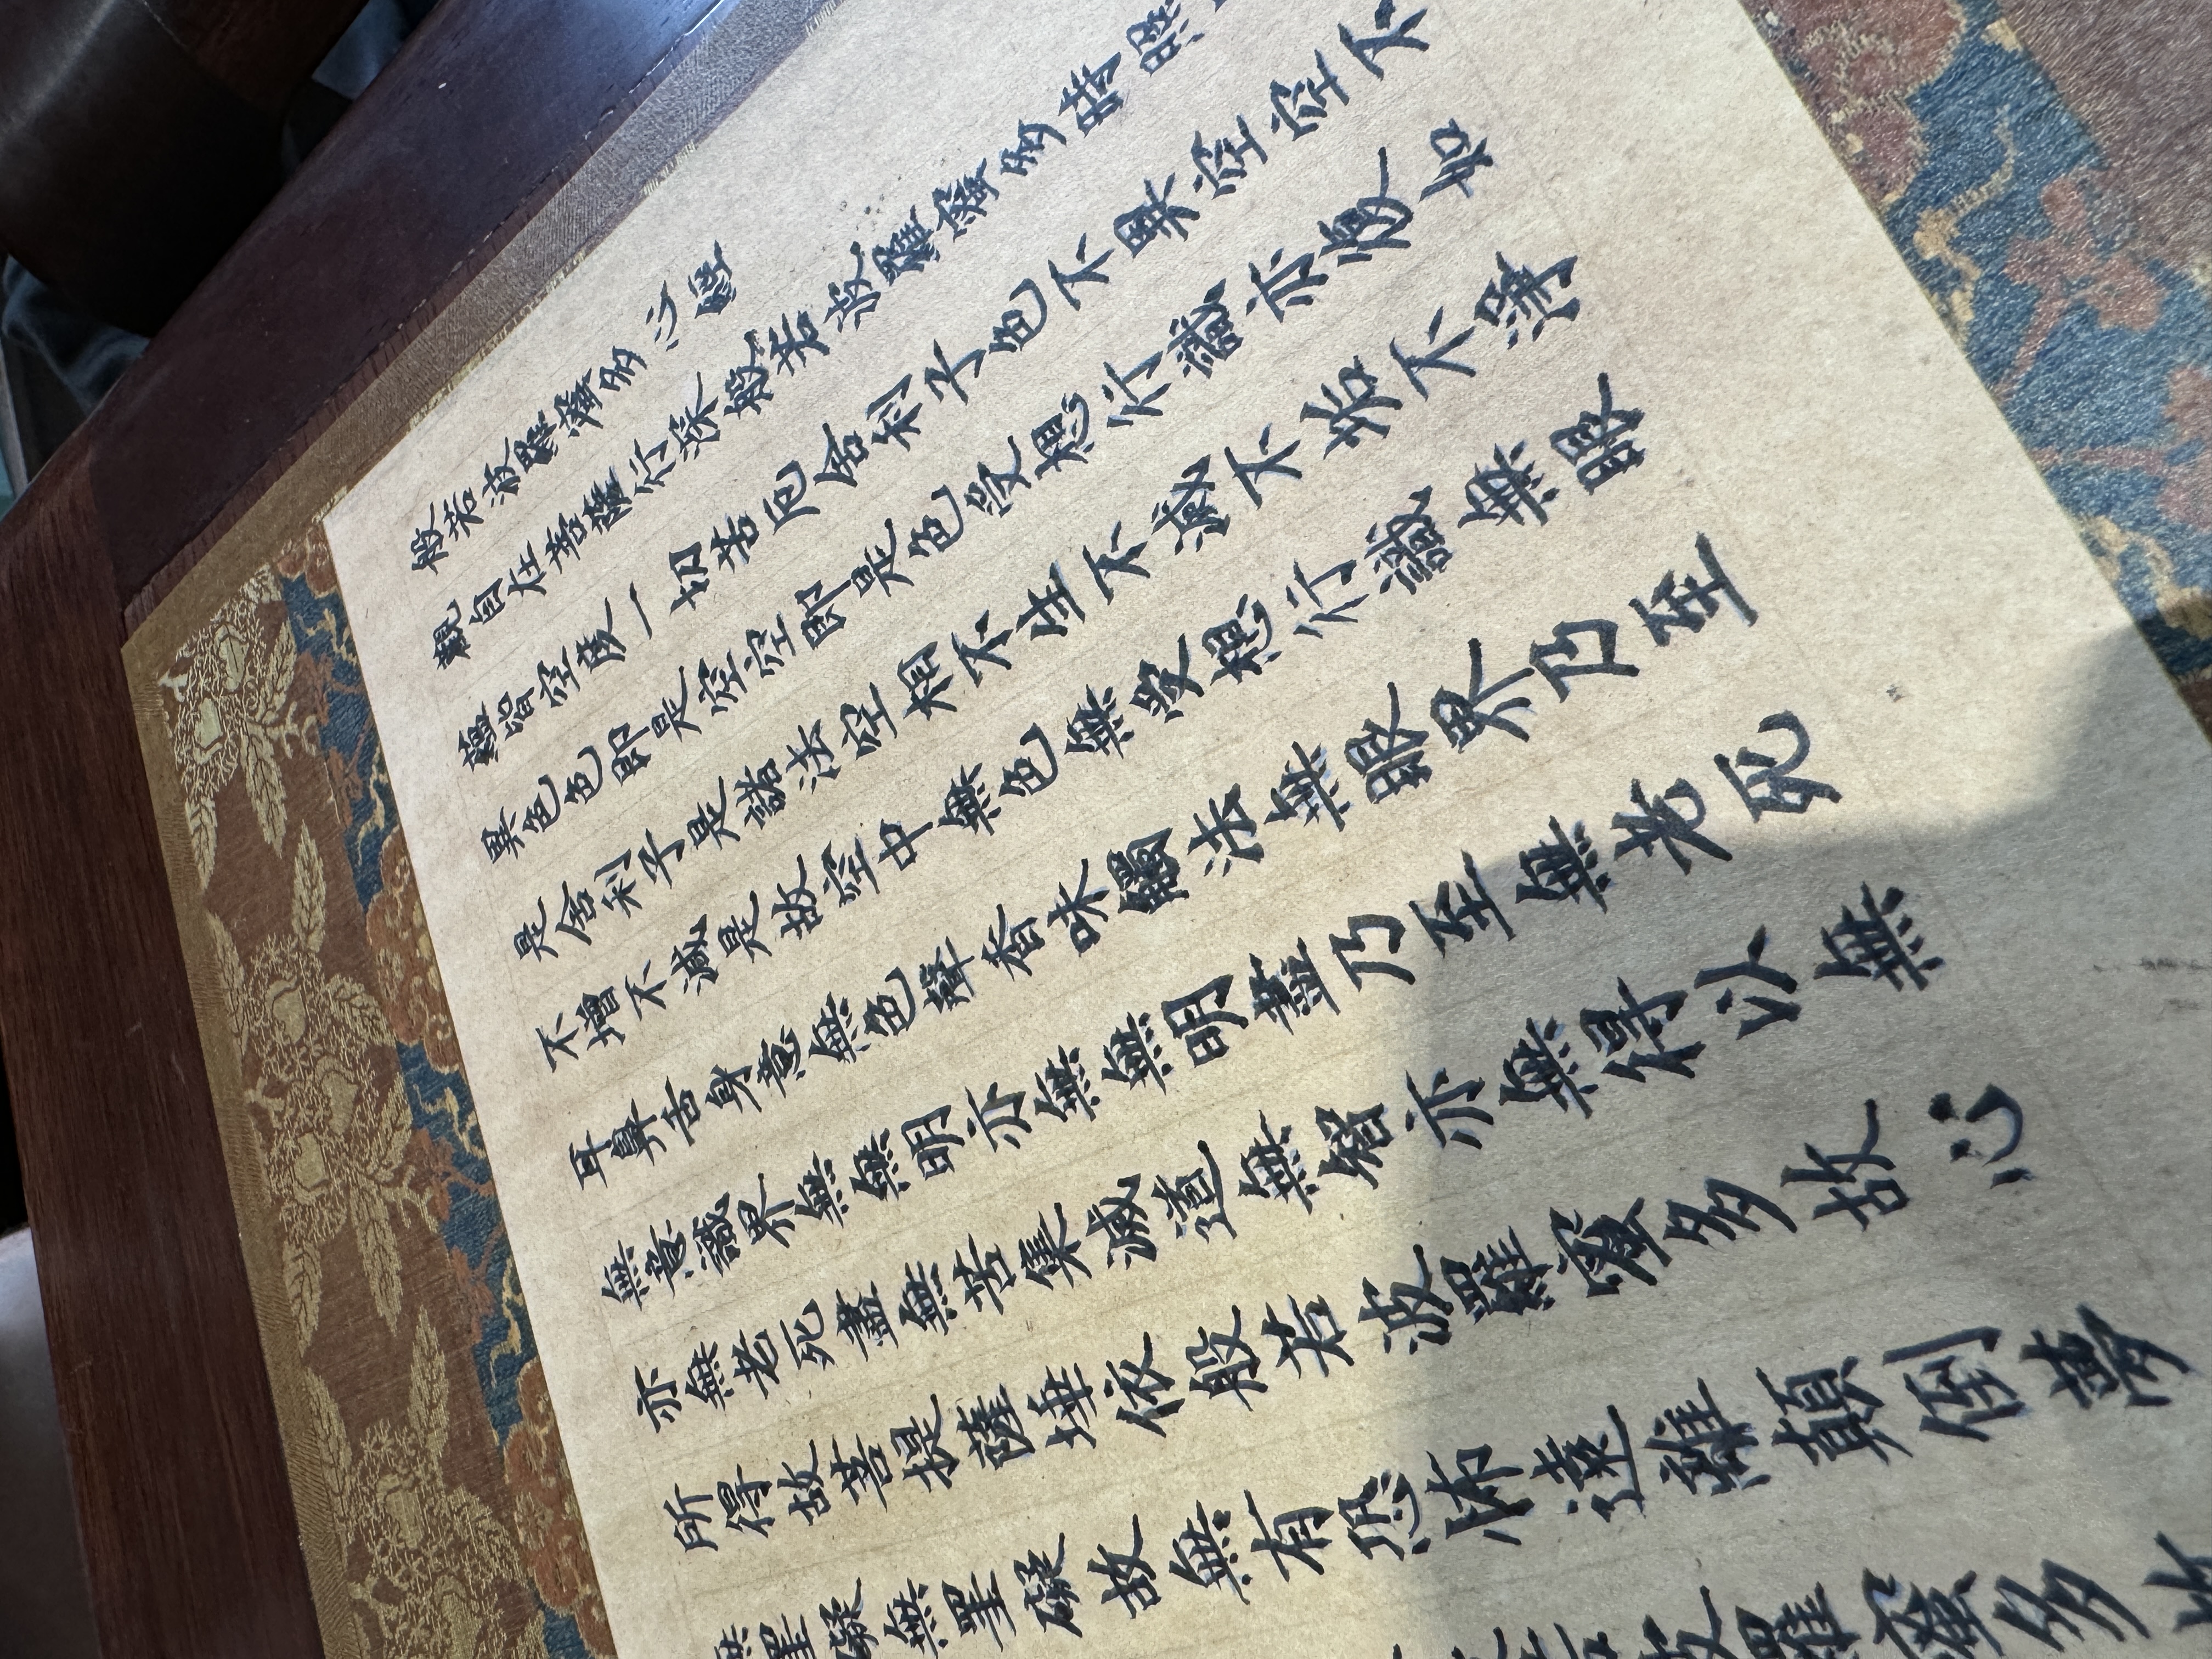 般若波羅蜜多心經
觀自在菩薩行深般若波羅蜜多時照
蘊皆空度一切苦厄舍利子色不異空空不
異色色即是空空即是色受想行識亦復如
是舍利子是諸法空相不生不滅不垢不淨
不增不減是故空中無色無受想行識無眼
耳鼻舌身意無色聲香味觸法無眼界乃至
無意識界無無明亦無無明盡乃至無老死
亦無老死盡無苦集滅道無智亦無得以無
所得故菩提薩埵依般若波羅蜜多故心
無罣礙無罣礙故無有恐怖遠離顛倒夢
波羅蜜多故